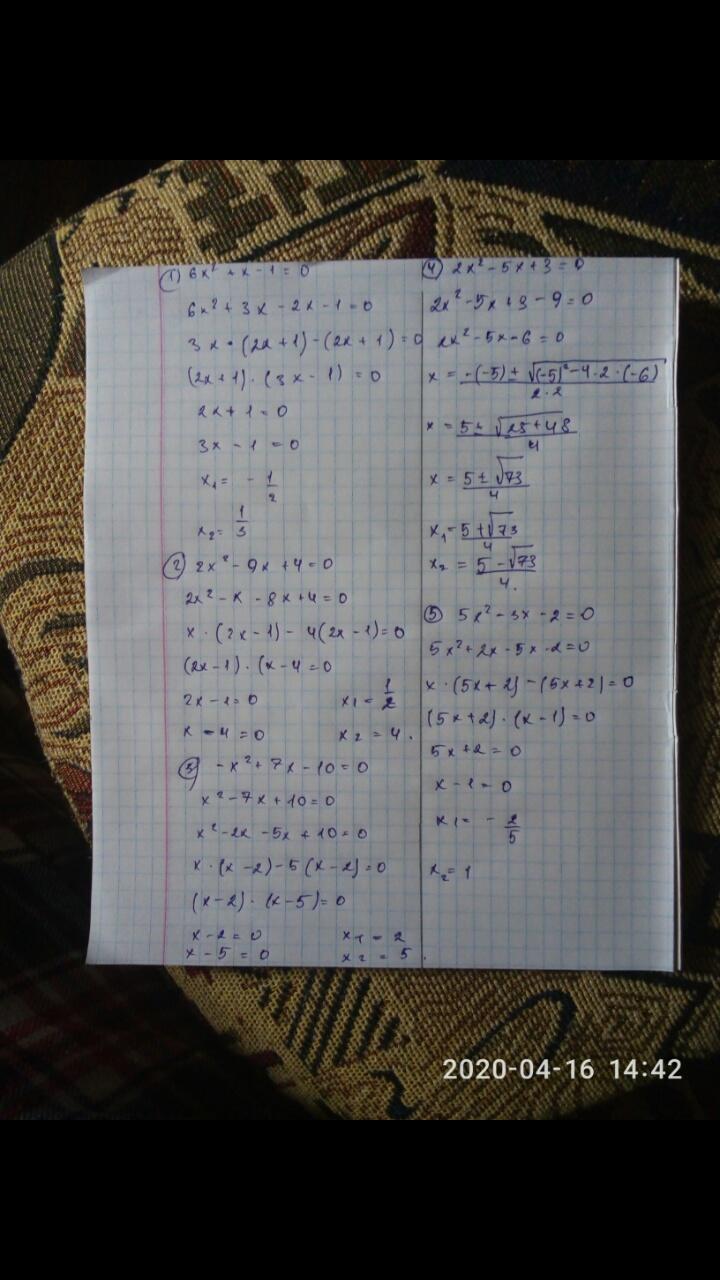 ① 6x² + x - 1 = 0
6x² + 3x - 2x - 1 = 0
3x · (2x + 1) - (2x + 1) = 0
(2x + 1) · (3x - 1) = 0
2x + 1 = 0
3x - 1 = 0
x₁ = - 1/2
x₂ = 1/3
② 2x² - 9x + 4 = 0
2x² - x - 8x + 4 = 0
x · (2x - 1) - 4(2x - 1) = 0
(2x - 1) · (x - 4 = 0
2x - 1 = 0 x₁ = 1/2
x - 4 = 0 x₂ = 4.
③ - x² + 7x - 10 = 0
x² - 7x + 10 = 0
x² - 2x - 5x + 10 = 0
x · (x - 2) - 5(x - 2) = 0
(x - 2) · (x - 5) = 0
x - 2 = 0 x₁ = 2
x - 5 = 0 x₂ = 5.
④ 2x² - 5x + 3 = 0
2x² - 5x + 3 - 9 = 0
2x² - 5x - 6 = 0
x = -(-5) ± √(-5)² - 4 · 2 · (-6) / 2 · 2
x = 5 ± √25 + 48 / 4
x = 5 ± √73 / 4
x₁ = 5 + √73 / 4
x₂ = 5 - √73 / 4.
⑤ 5x² - 3x - 2 = 0
5x² + 2x - 5x - 2 = 0
x · (5x + 2) - (5x + 2) = 0
(5x + 2) · (x - 1) = 0
5x + 2 = 0
x - 1 = 0
x₁ = - 2/5
x₂ = 1
2020-04-16 14:42